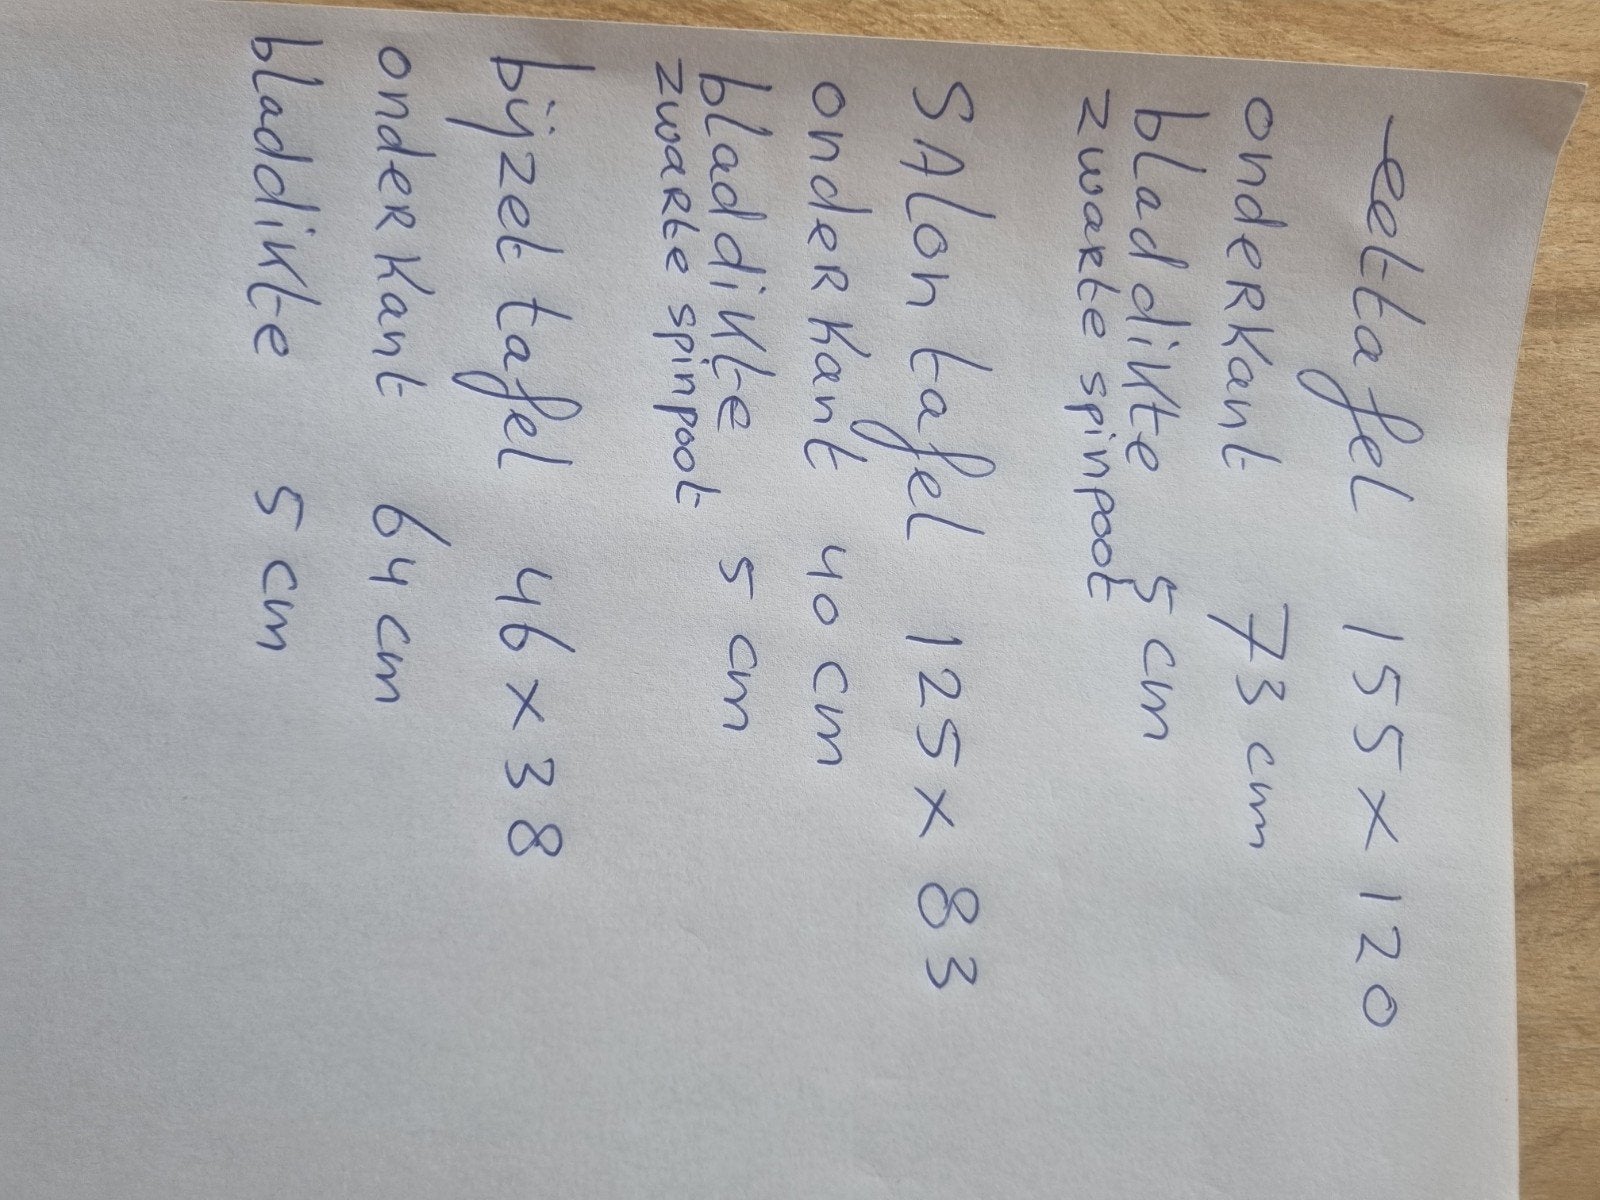 eettafel 155 x 120
onderkant 73 cm
bladdikte 5 cm
zwarte spinpoot
SAlontafel 125 x 83
onderkant 40 cm
bladdikte 5 cm
zwarte spinpoot
bijzettafel 46 x 38
onderkant 64 cm
bladdikte 5 cm